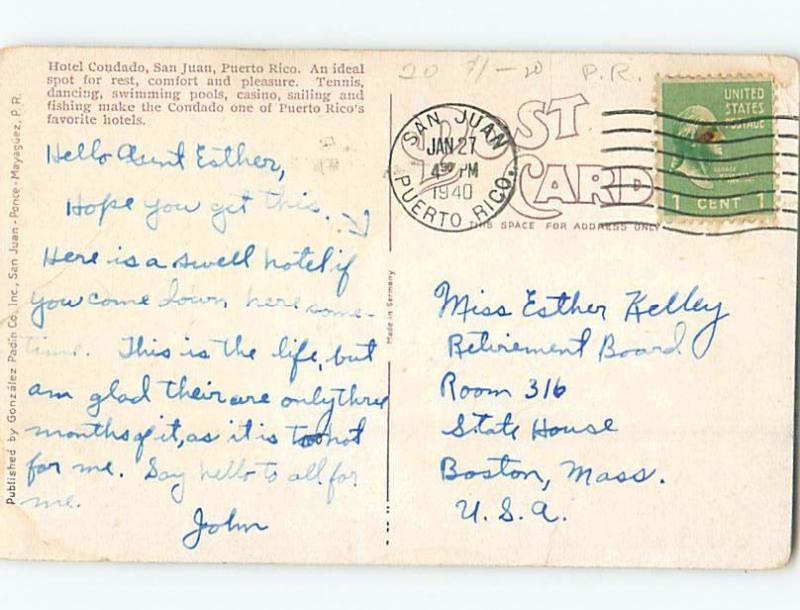 Hotel Condado, San Juan, Puerto Rico. An ideal
spot for rest, comfort and pleasure. Tennis,
dancing, swimming pools, casino, sailing and
fishing make the Condado one of Puerto Rico's
favorite hotels.
Hello Aunt Esther,
Hope you get this.
Here is a swell hotel if
you come down here some-
time. This is the life, but
am glad their are only three
months of it, as it is too hot
for me. Say hello to all for
me.
John
Published by González Padín Co., Inc., San Juan - Ponce - Mayagüez, P. R.
Made in Germany
20 7/-20 P.R.
POST
CARD
THIS SPACE FOR ADDRESS ONLY
SAN JUAN
JAN 27
4 30 PM
1940
PUERTO RICO
UNITED
STATES
POSTAGE
GEORGE
1 CENT 1
Miss Esther Kelley
Retirement Board
Room 316
State House
Boston, Mass.
U. S. A.